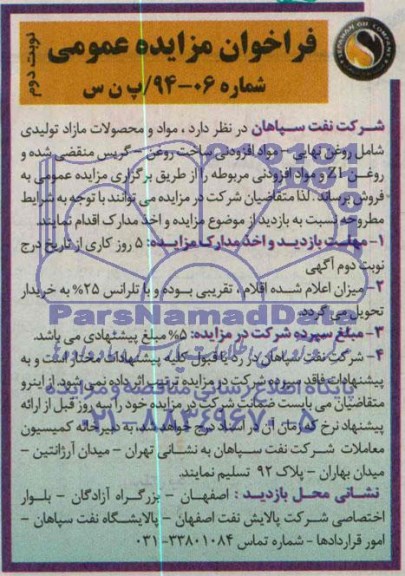 SEPAHAN OIL COMPANY
نوبت دوم
فراخوان مزایده عمومی
شماره ۰۶-۹۴/پ ن س
شرکت نفت سپاهان در نظر دارد ، مواد و محصولات مازاد تولیدی
شامل روغن نهایی - مواد افزودنی ساخت روغن - گریس منقضی شده و
روغن Z1 و مواد افزودنی مربوطه را از طریق برگزاری مزایده عمومی به
فروش برساند . لذا متقاضیان شرکت در مزایده می توانند با توجه به شرایط
مطروحه نسبت به بازدید از موضوع مزایده و اخذ مدارک اقدام نمایند
۱- مهلت بازدید و اخذ مدارک مزایده: ۵ روز کاری از تاریخ درج
نوبت دوم آگهی
۲- میزان اعلام شده اقلام ، تقریبی بوده و با تلرانس ۲۵% به خریدار
تحویل می گردد.
ParsNamadData
۳- مبلغ سپرده شرکت در مزایده: ۵% مبلغ پیشنهادی می باشد.
۴- شرکت نفت سپاهان در رد یا قبول کلیه پیشنهادات مختار است و به
پیشنهادات فاقد سپرده شرکت در مزایده ترتیب اثر داده نمی شود. از اینرو
پایگاه اطلاع رسانی مناقصه و مزایده
متقاضیان می بایست ضمانت شرکت در مزایده خود را سه روز قبل از ارائه
پیشنهاد نرخ که زمان آن در اسناد درج خواهد شد، به دبیرخانه کمیسیون
۰۲۱-۸۸۳۴۹۶۷۰-۵
معاملات شرکت نفت سپاهان به نشانی تهران - میدان آرژانتین -
میدان بهاران - پلاک ۹۲ تسلیم نمایند.
نشانی محل بازدید : اصفهان - بزرگراه آزادگان - بلوار
اختصاصی شرکت پالایش نفت اصفهان - پالایشگاه نفت سپاهان -
امور قراردادها - شماره تماس ۳۳۸۰۱۰۸۴-۰۳۱